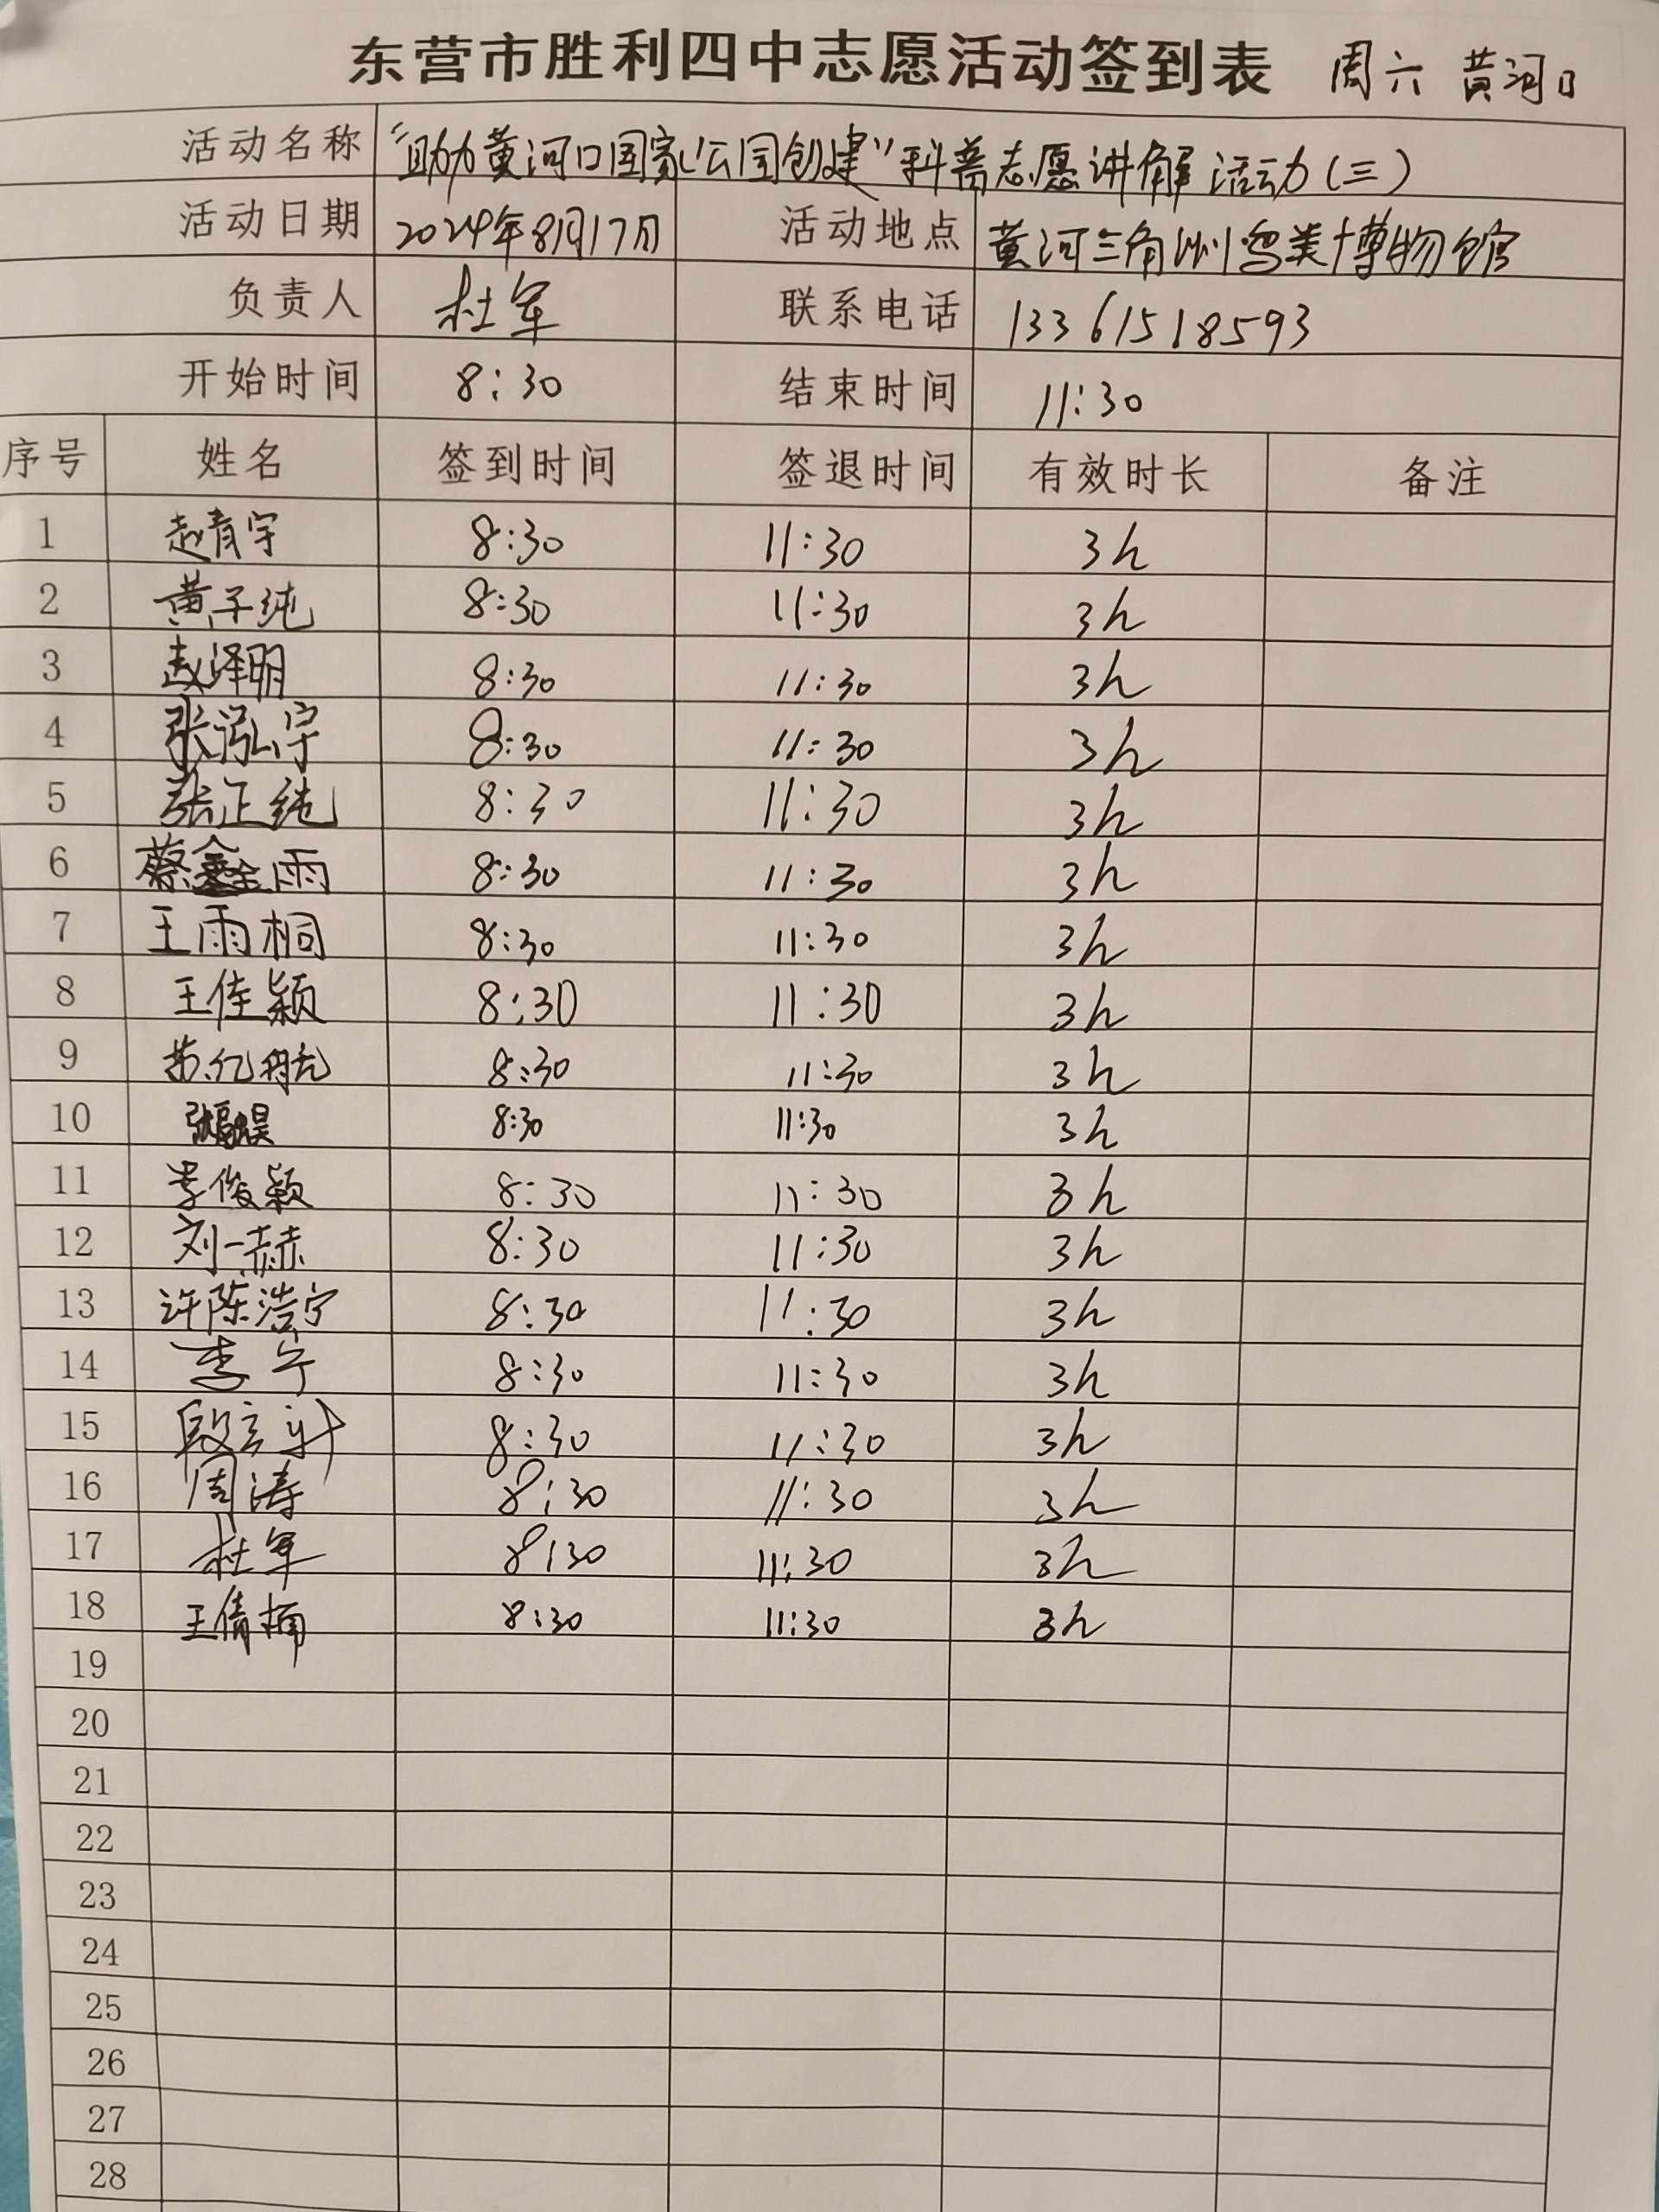 东营市胜利四中志愿活动签到表 周六 黄河口
活动名称 “助力黄河口国家公园创建”科普志愿讲解活动(三)
活动日期 2024年8月17日 活动地点 黄河三角洲鸟类博物馆
负责人 杜军 联系电话 13361518593
开始时间 8:30 结束时间 11:30
序号 姓名 签到时间 签退时间 有效时长 备注
1 赵育宇 8:30 11:30 3h
2 黄子纯 8:30 11:30 3h
3 赵泽明 8:30 11:30 3h
4 张泓宇 8:30 11:30 3h
5 张正纯 8:30 11:30 3h
6 蔡鑫雨 8:30 11:30 3h
7 王雨桐 8:30 11:30 3h
8 王佳颖 8:30 11:30 3h
9 苏亿航 8:30 11:30 3h
10 8:30 11:30 3h
11 李俊颖 8:30 11:30 3h
12 刘一赫 8:30 11:30 3h
13 许陈浩宁 8:30 11:30 3h
14 李宁 8:30 11:30 3h
15 8:30 11:30 3h
16 周涛 8:30 11:30 3h
17 杜军 8:30 11:30 3h
18 王倩楠 8:30 11:30 3h
19
20
21
22
23
24
25
26
27
28